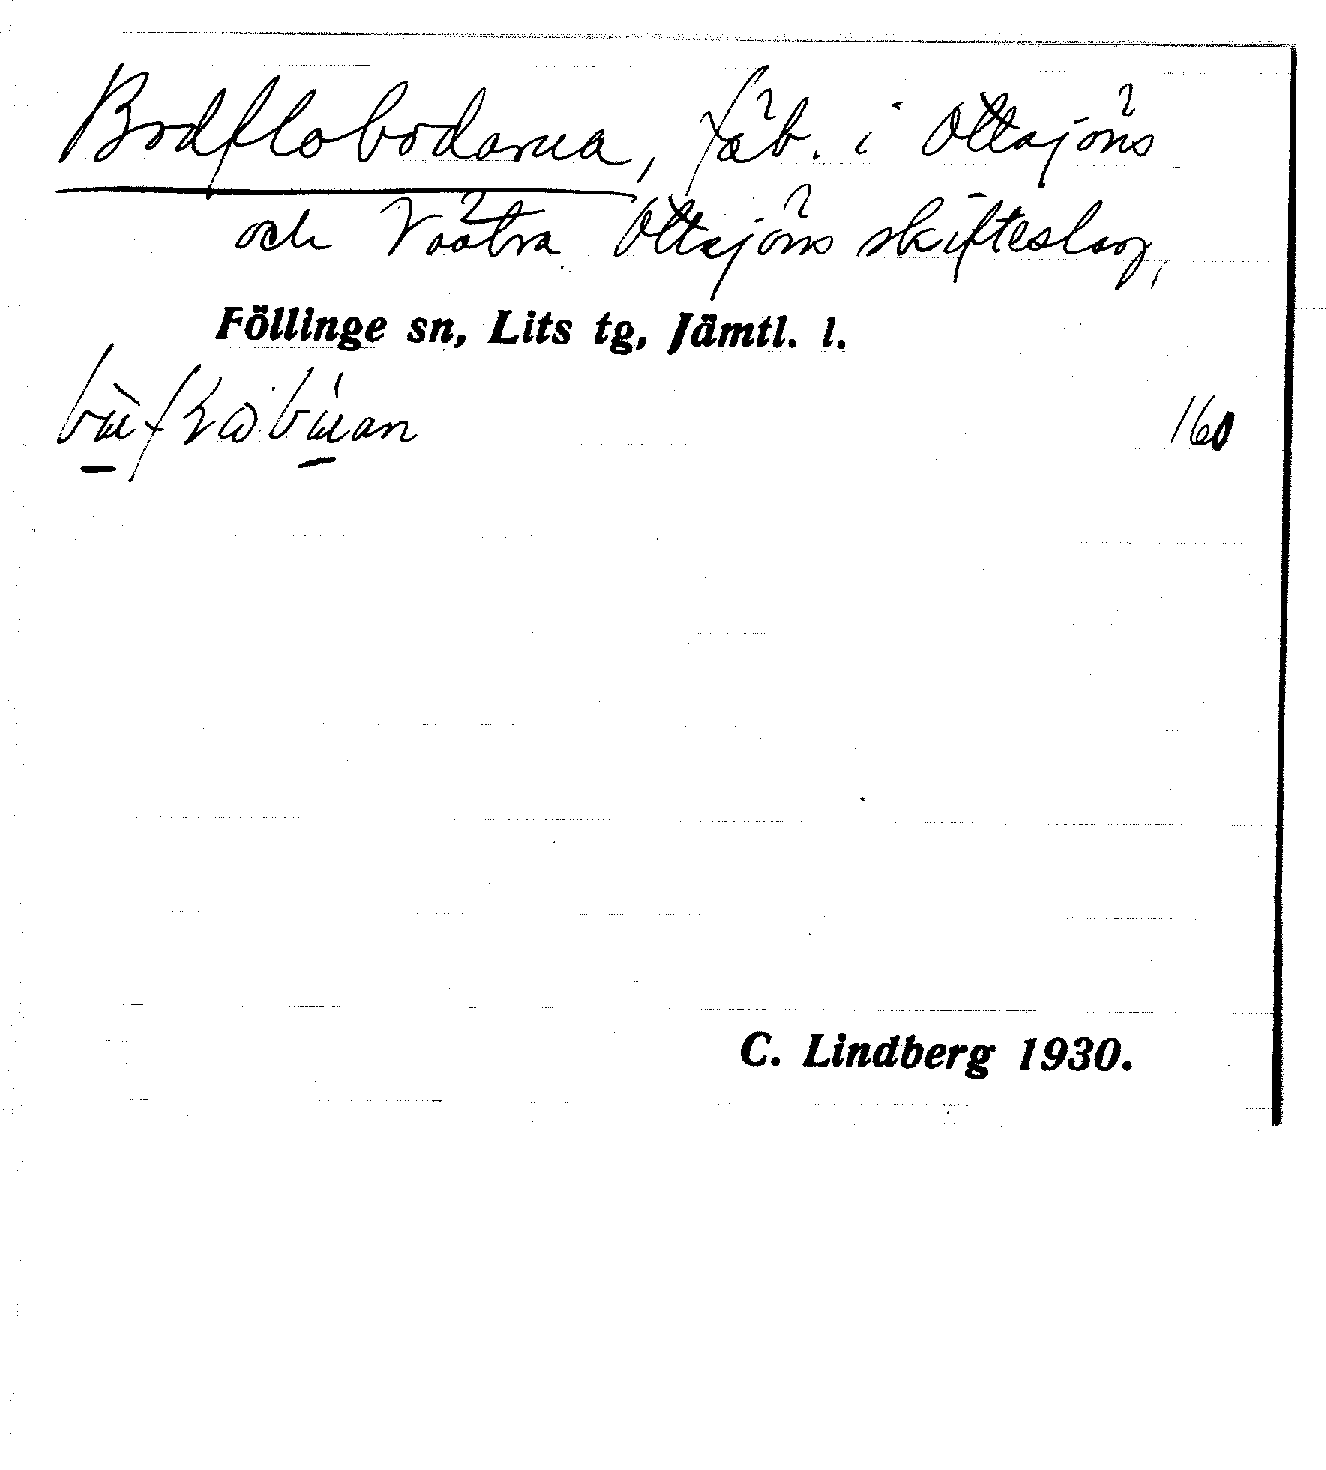 Bodflobodarna, fäb. i Ottsjöns
och Västra Ottsjöns skifteslag,
Föllinge sn, Lits tg, Jämtl. l.
160
C. Lindberg 1930.